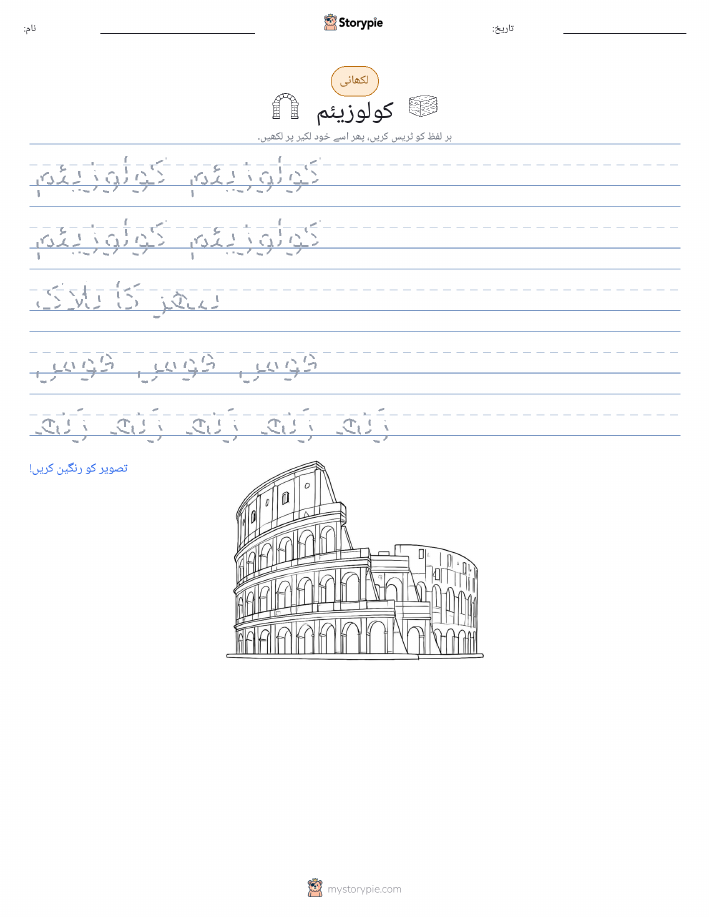 نام:
Storypie
تاریخ:
لکھائی
کولوزیئم
ہر لفظ کو ٹریس کریں، پھر اسے خود لکیر پر لکھیں۔
کولوزیئم کولوزیئم
کولوزیئم کولوزیئم
پتھر کا بلاک
قوس قوس قوس
تصویر کو رنگین کریں!
mystorypie.com